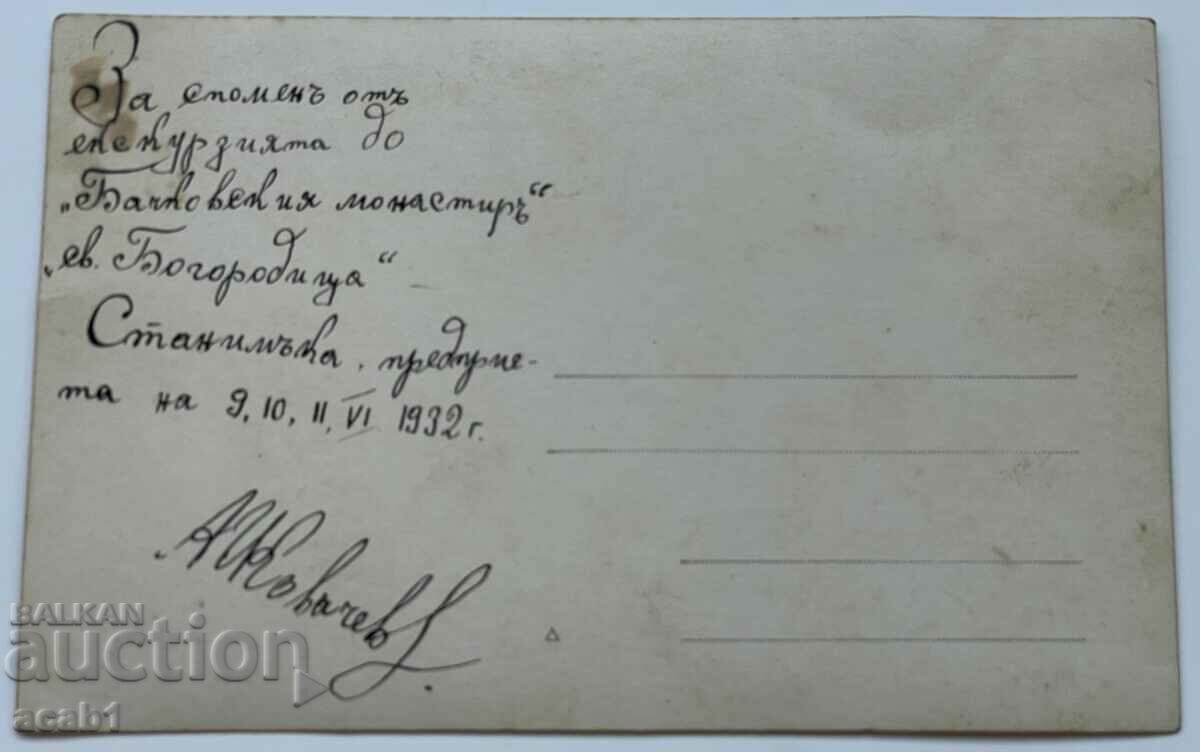 За споменъ отъ
екскурзията до
„Бачковския монастиръ“
„св. Богородица“
Станимъка, предприе-
та на 9, 10, 11, VI 1932 г.
АКовачевъ
BALKAN
auction
acab1